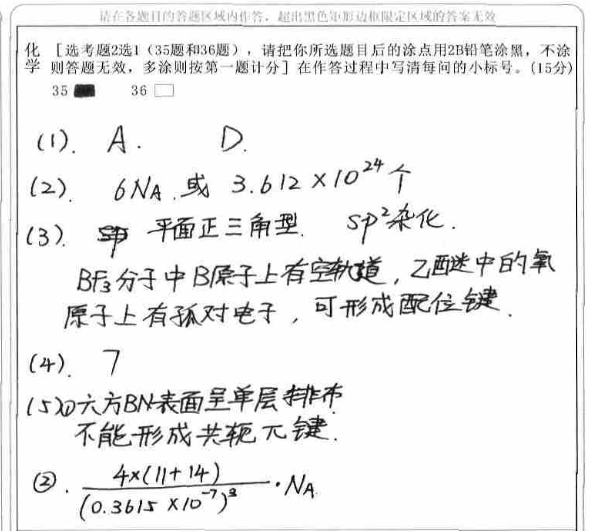 请在各题目的答题区域内作答,超出黑色矩形边框限定区域的答案无效
化学 [选考题2选1(35题和36题),请把你所选题目后的涂点用2B铅笔涂黑,不涂
则答题无效,多涂则按第一题计分]在作答过程中写清每问的小标号。(15分)
35 ■ 36 □
(1). A. D.
(2). 6NA.或 3.612×10²⁴个
(3). 平面正三角型. sp²杂化.
BF₃分子中B原子上有空轨道,乙醚中的氧
原子上有孤对电子,可形成配位键.
(4). 7
(5)①六方BN表面呈单层排布
不能形成共轭π键.
②. 4×(11+14)
/(0.3615×10⁻⁷)³ ·NA